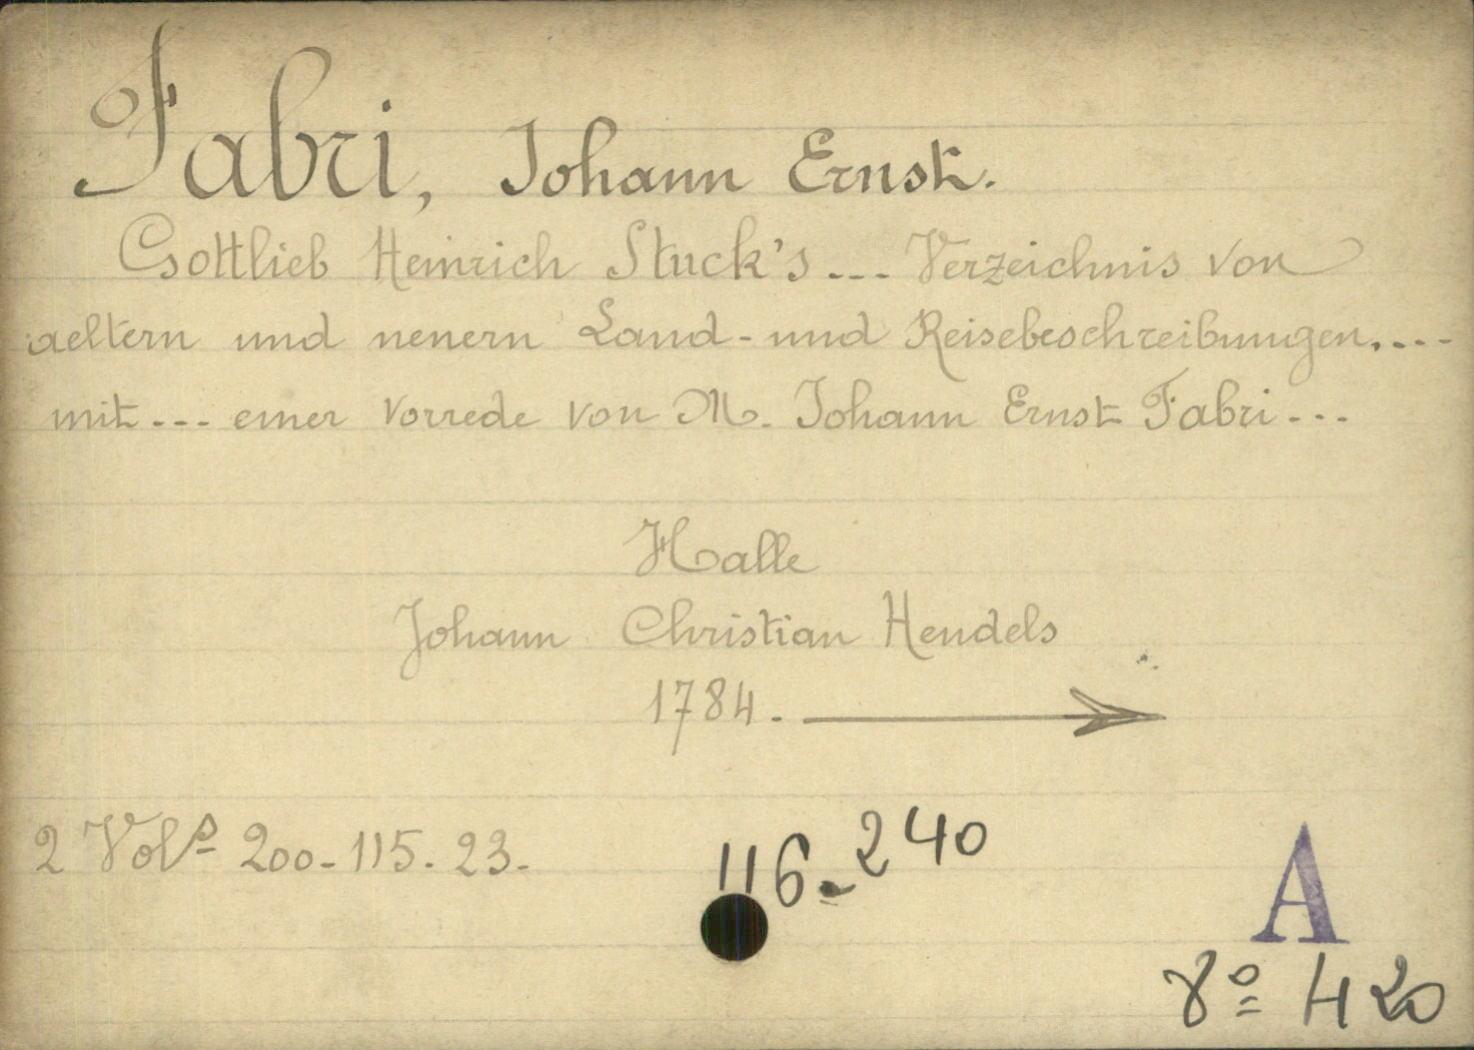 Fabri, Johann Ernst.
Gottlieb Heinrich Stuck's... Verzeichnis von
aeltern und neuern Land- und Reisebeschreibungen....
mit... einer Vorrede von M. Johann Ernst Fabri...
Halle
Johann Christian Hendels
1784.
2 Vols 200-115-23-
116-240
A
8º H 20